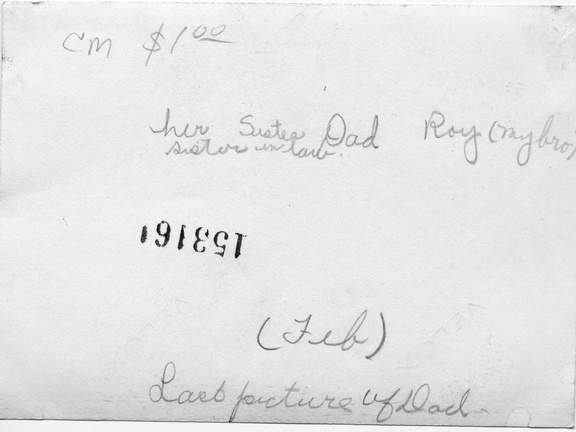 CM $1.00
her Sister Dad Roy (my bro)
sister in law.
153161
(Feb)
Last picture of Dad.